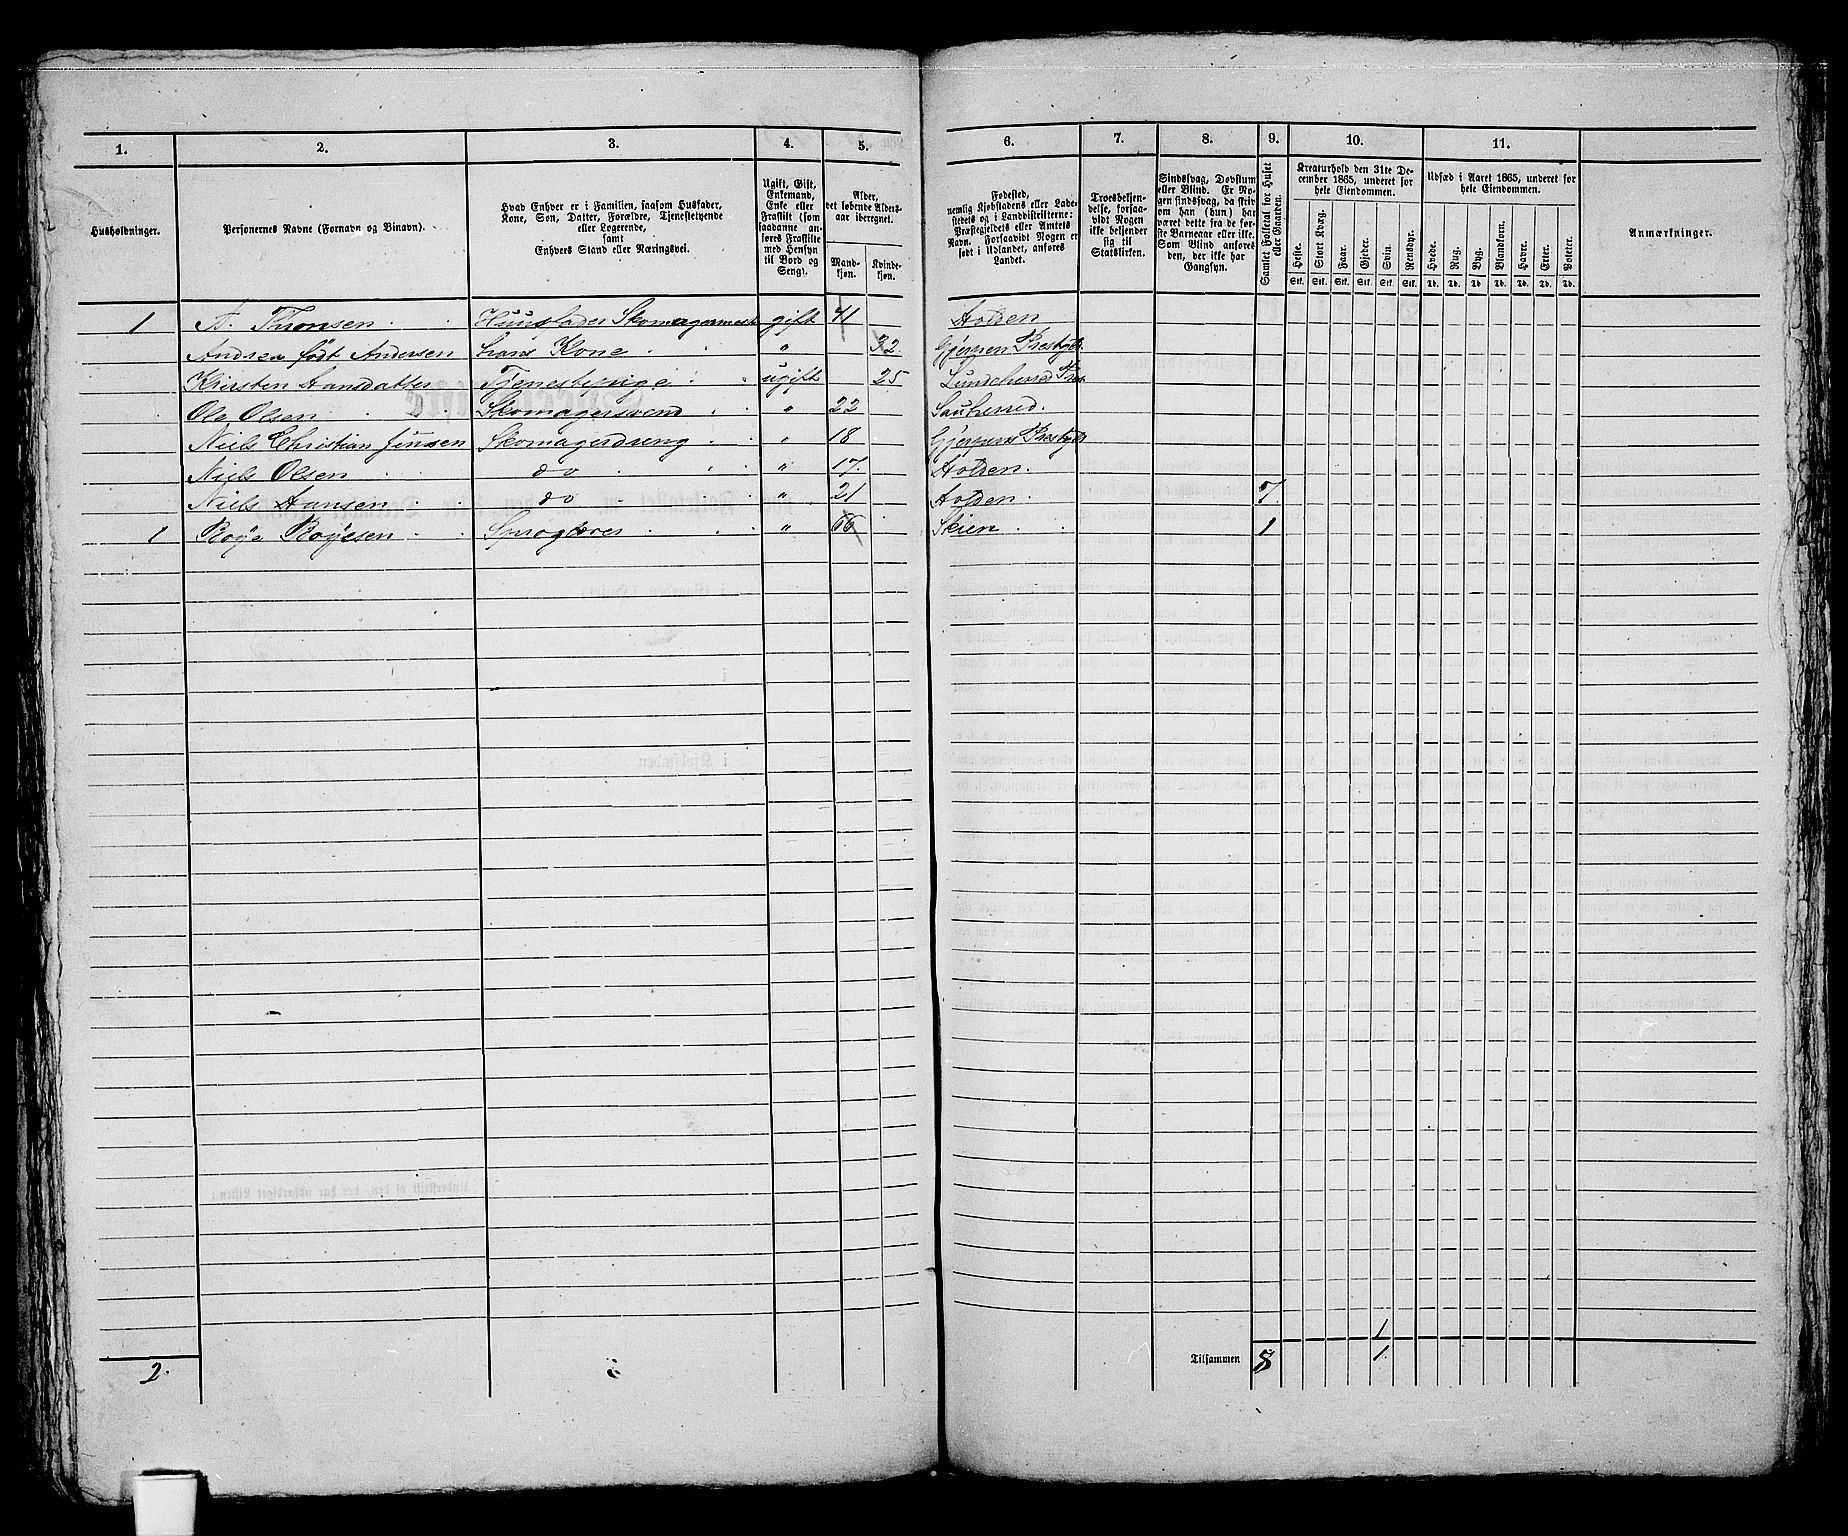 1. 2. 3. 4. 5. 6. 7. 8. 9. 10. 11.
Husholdninger.
Personernes Navne (Fornavn og Binavn).
Hvad Enhver er i Familien, saasom Husfader,
Kone, Søn, Datter, Forældre, Tjenestetyende
eller Logerende,
samt
Enhvers Stand eller Næringsvei.
Ugift, Gift,
Enkemand,
Enke eller
Fraskilt (som
saadanne an-
føres Fraskilte
med Hensyn
til Bord og
Seng).
Alder,
det løbende Alders-
aar iberegnet.
Mand-
kjøn.
Kvinde-
kjøn.
Fødested,
nemlig Kjøbstadens eller Lade-
stedets og i Landdistrikterne:
Præstegjeldets eller Amtets
Navn. Forsaavidt Nogen er
født i Udlandet, anføres
Landet.
Troesbekjen-
delse, forsaa-
vidt Nogen
ikke bekjender
sig til
Statskirken.
Sindssvag, Døvstum
eller Blind. Er No-
gen sindssvag, da skriv
om han (hun) har
været dette fra de før-
ste Barneaar eller ikke.
Som Blind anføres
den, der ikke har
Gangsyn.
Samlet Folketal for Huset
eller Gaarden.
Kreaturhold den 31te De-
cember 1865, underet for
hele Eiendommen.
Heste. Stort Kvæg. Faar. Gjeder. Svin. Rensdyr.
Stk. Stk. Stk. Stk. Stk. Stk.
Udsæd i Aaret 1865, underet for
hele Eiendommen.
Hvede. Rug. Byg. Blandkorn. Havre. Erter. Poteter.
Td. Td. Td. Td. Td. Td. Td.
Anmærkninger.
1 A. Thomsen Huusfader Skomagermest gift 41 Holden
Andrea født Andersen hans Kone " 32. Gjerpen Prestgj.
Kirsten Hansdatter Tjenestepige ugift 25 Lundeherred Pres.
Ole Olsen Skomagersvend " 22 Sauherred.
Niels Christian Jensen Skomagerdreng " 18 Gjerpens Prestgj
Niels Olsen do " 17. Holden.
Niels Hansen do " 21 Holden. 7.
1 Røye Røyesen Sproglærer " 66 Skien 1
1
2. Tilsammen 8 1.